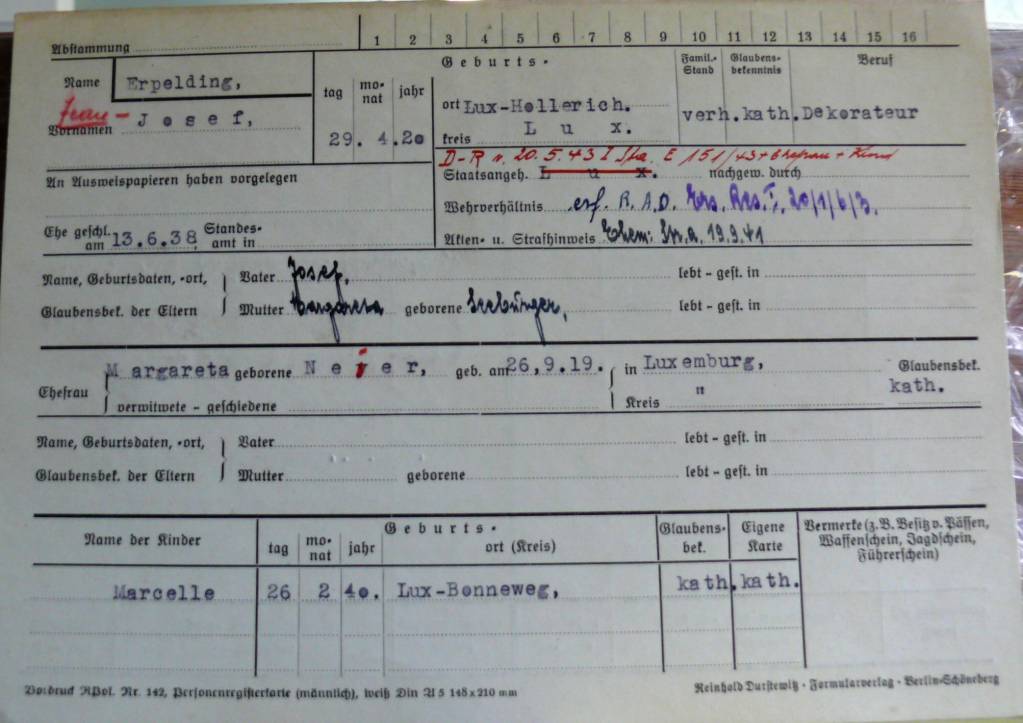 Abstammung 1 2 3 4 5 6 7 8 9 10 11 12 13 14 15 16
Name Erpelding,
tag mo-nat jahr
Geburts-
Famil.-Stand
Glaubens-bekenntnis
Beruf
Vornamen Josef,
29. 4.20
ort Lux-Hollerich.
kreis Lux.
verh. kath. Dekorateur
D-R v. 20.5.43 I E 151/43 + Ehefrau + Kind
An Ausweispapieren haben vorgelegen
Staatsangeh. Lux. nachgew. durch
Wehrverhältnis erf. R.A.D. Ers. Res. I, 20/1/6/3.
Ehe geschl. am 13.6.38 Standes-amt in
Akten- u. Strafhinweis 19.9.41
Name, Geburtsdaten, -ort, Vater Josef, lebt - gest. in
Glaubensbek. der Eltern Mutter Margareta geborene lebt - gest. in
Ehefrau Margareta geborene Neier, geb. am 26,9.19. in Luxemburg, Glaubensbek.
verwitwete - geschiedene Kreis " kath.
Name, Geburtsdaten, -ort, Vater lebt - gest. in
Glaubensbek. der Eltern Mutter geborene lebt - gest. in
Name der Kinder
Geburts-
tag mo-nat jahr ort (Kreis)
Glaubens-bek.
Eigene Karte
Vermerke (z.B. Besitz v. Pässen,
Waffenschein, Jagdschein,
Führerschein)
Marcelle 26 2 40. Lux-Bonneweg, kath. kath.
Vordruck RPol. Nr. 142, Personenregisterkarte (männlich), weiß Din A 5 148 x 210 mm
Reinhold Durstewitz · Formularverlag · Berlin-Schöneberg